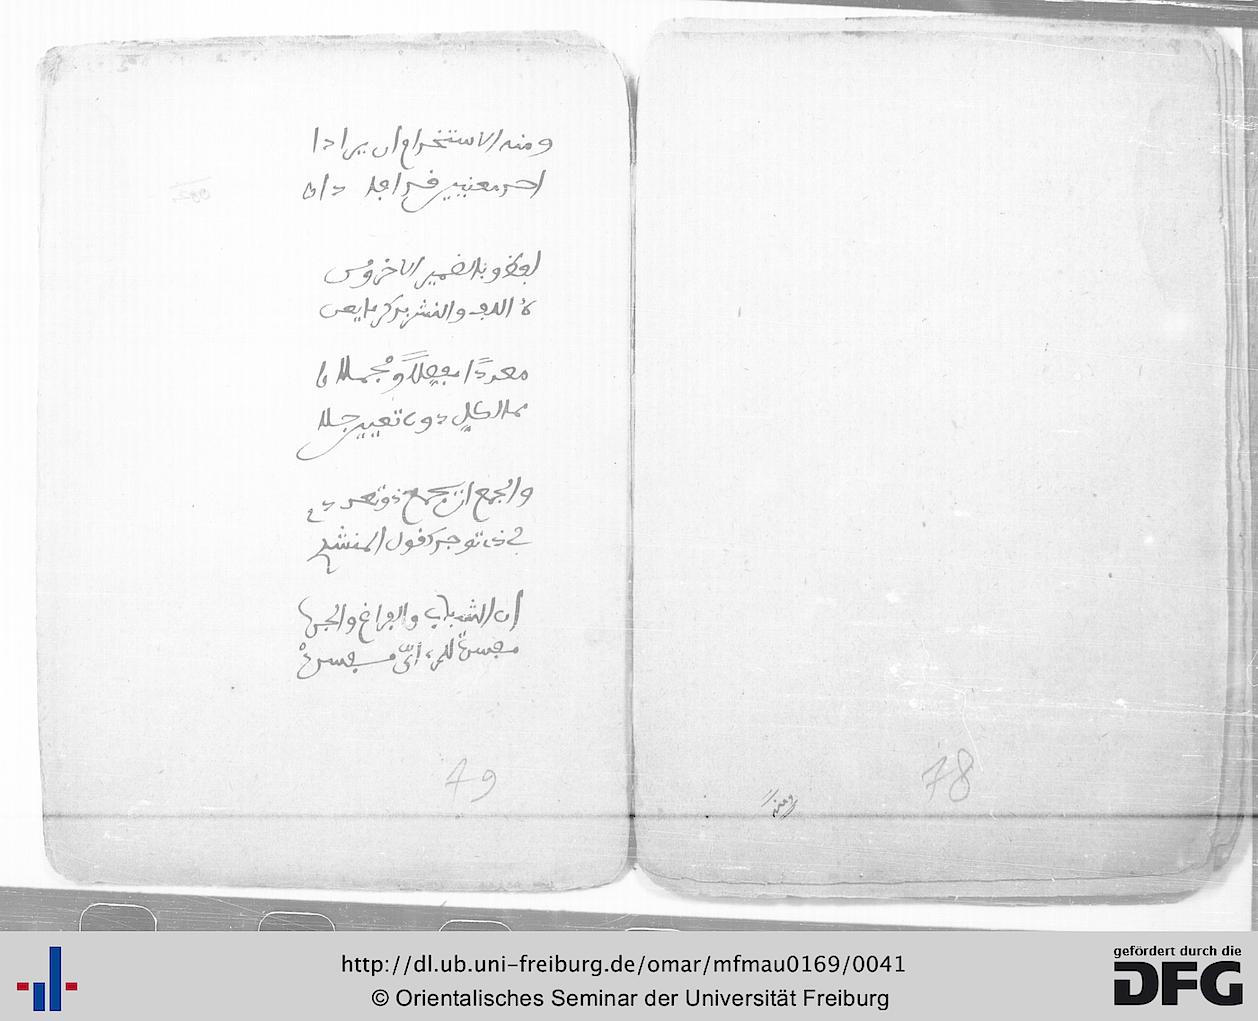 ومنه
78
ومنه الاستخدام ان يرادا
احد معنيين
وبالضمير الاخر ومن
اللف والنشر بذكر
معددا مفصلا ومجملا
الكل دون تعيين جلا
والجمع ان يجمع ذو تعدد
كقول المنشد
ان الشباب والفراغ والجده
مفسدة للمرء أي مفسده
79
http://dl.ub.uni-freiburg.de/omar/mfmau0169/0041
© Orientalisches Seminar der Universität Freiburg
gefördert durch die
DFG